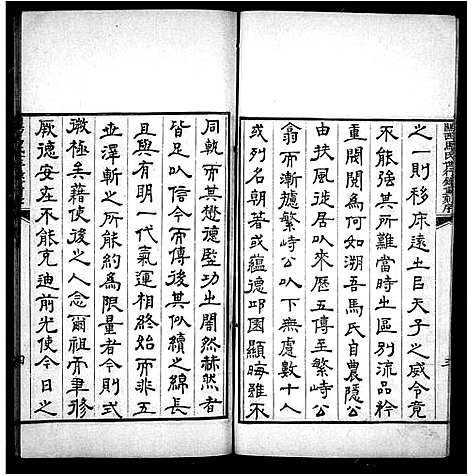 關西馬氏世行錄
之一則移床遠土臣天子之威令竟
不能強其所難當時士區別流品矜
重閥為何如溯吾馬氏自農隱公
由扶風徙居以來歷五傳至繁峙公
翕而漸擴繁峙公以下無慮數十人
或列名朝著或蘊德邱園顯晦雖不
同軌而其懋德監功士闇然赫然者
皆足以信今而傳後其似續之綿長
且與有明一代氣運相終始而非五
世澤斬之所能約為限量者今則式
微極矣藉使後之人念爾祖而聿修
厥德安在不能克迪前光使今日之